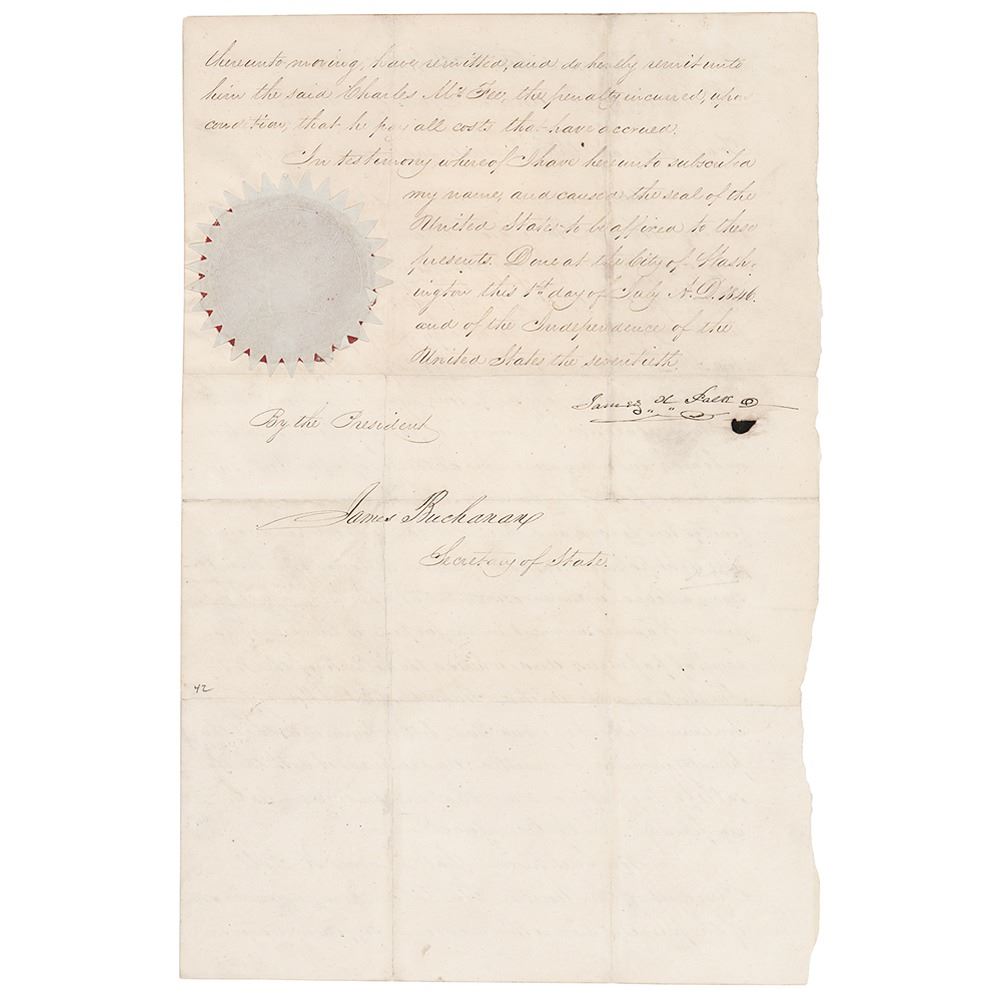 thereunto moving, have remitted, and do hereby remit unto
him the said Charles Mc Fee, the penalty incurred, upon
condition, that he pay all costs that have accrued.
In testimony whereof I have hereunto subscribed
my name, and caused the seal of the
United States to be affixed to these
presents. Done at the City of Wash-
ington this 1st day of July A.D. 1846.
and of the Independence of the
United States the seventieth.
James K Polk
By the President
James Buchanan
Secretary of State.
42